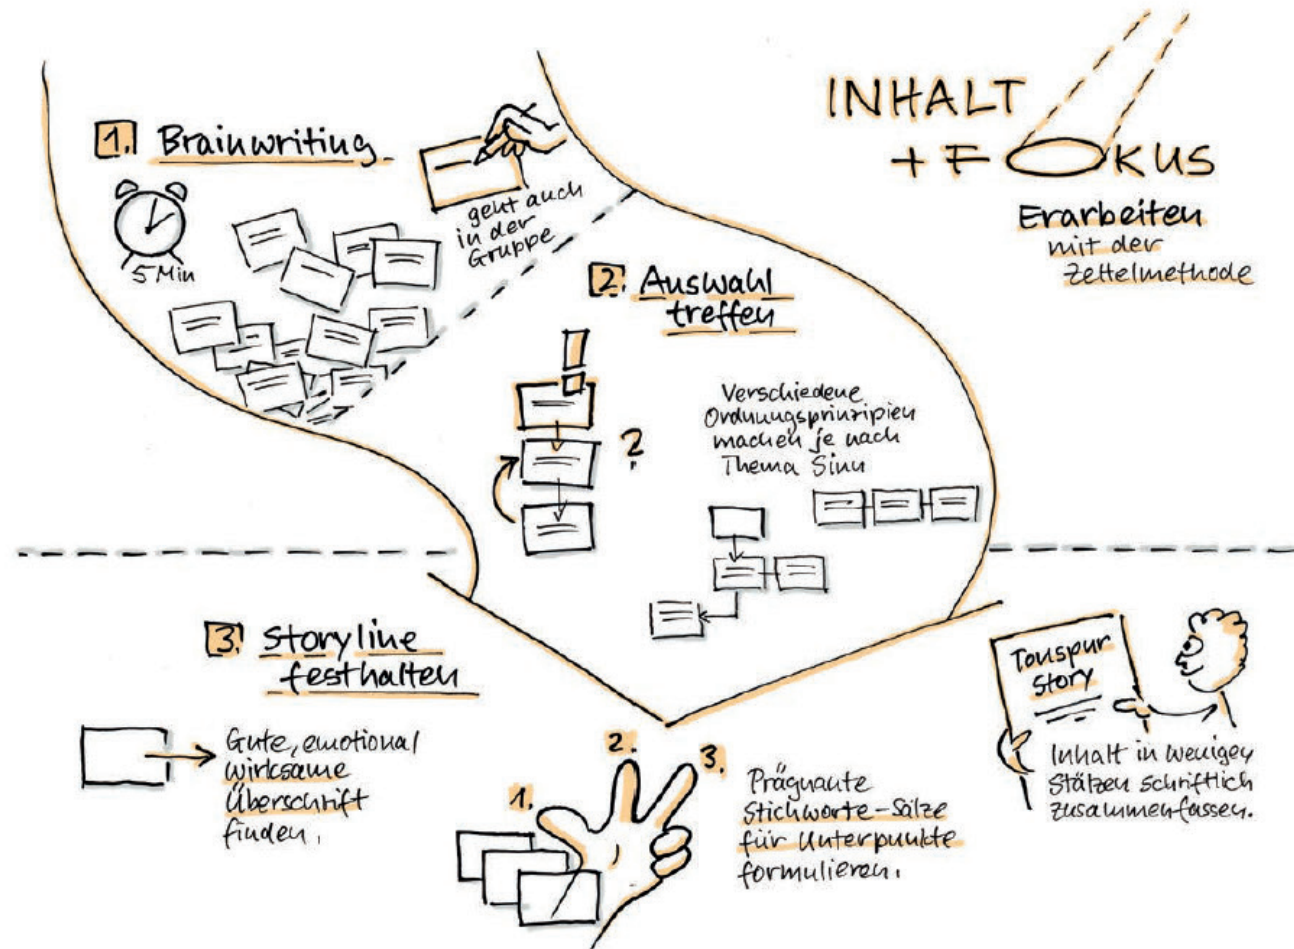 INHALT
+ FOKUS
Erarbeiten
mit der
Zettelmethode
1. Brainwriting
5 Min
geht auch
in der
Gruppe
2. Auswahl
treffen
?
Verschiedene
Ordnungsprinzipien
machen je nach
Thema Sinn
3. Storyline
festhalten
Gute, emotional
wirksame
Überschrift
finden.
1.
2.
3.
Prägnante
Stichworte-Sätze
für Unterpunkte
formulieren.
Tonspur
Story
Inhalt in wenigen
Stätzen schriftlich
zusammenfassen.